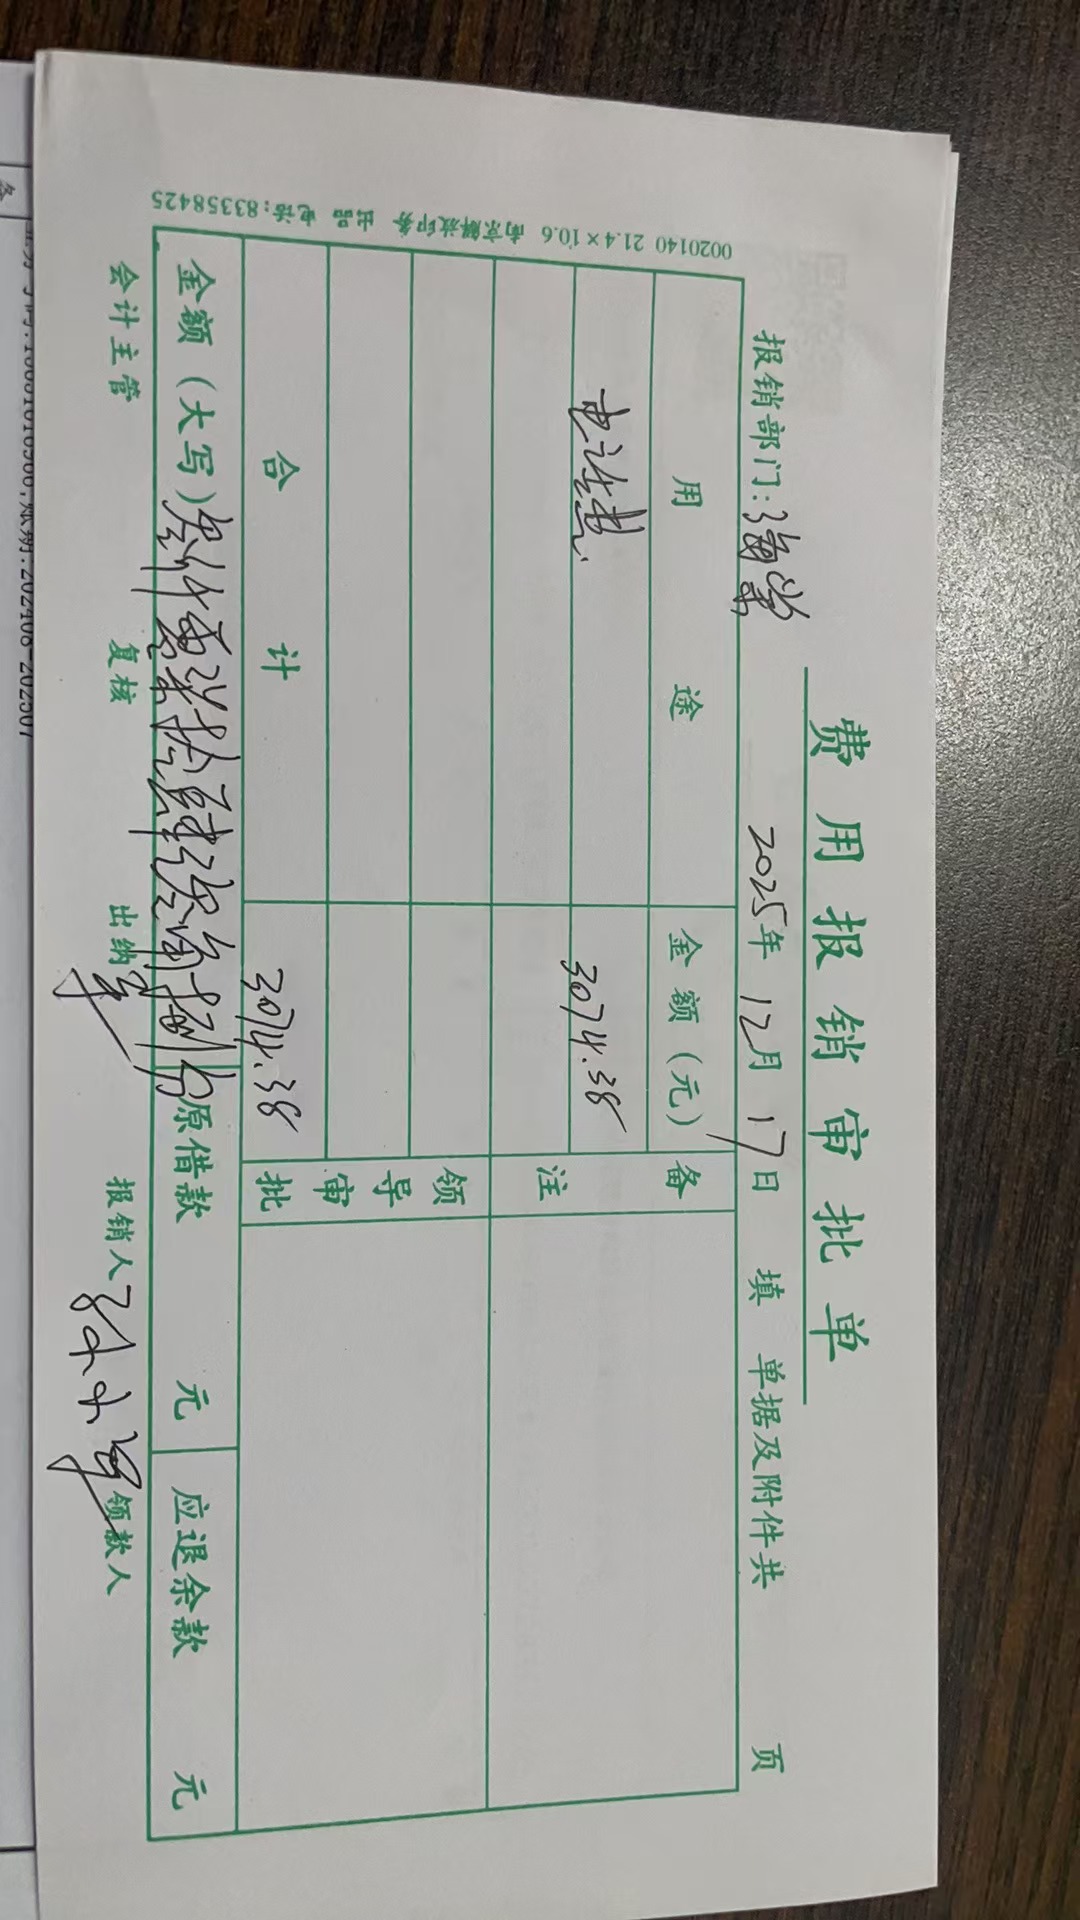 费用报销审批单
报销部门: 2025年 12月 17日 填 单据及附件共 页
用 途 金 额 (元) 备 注
电话费 3074.38
领导审批
合 计 3074.38
金额 (大写) 叁仟零柒拾肆元叁角捌分 原借款 元 应退余款 元
会计主管 复核 出纳 报销人 领款人
0020140 21.4×10.6 南京解放印务 出品 电话:83358425
202408-202501